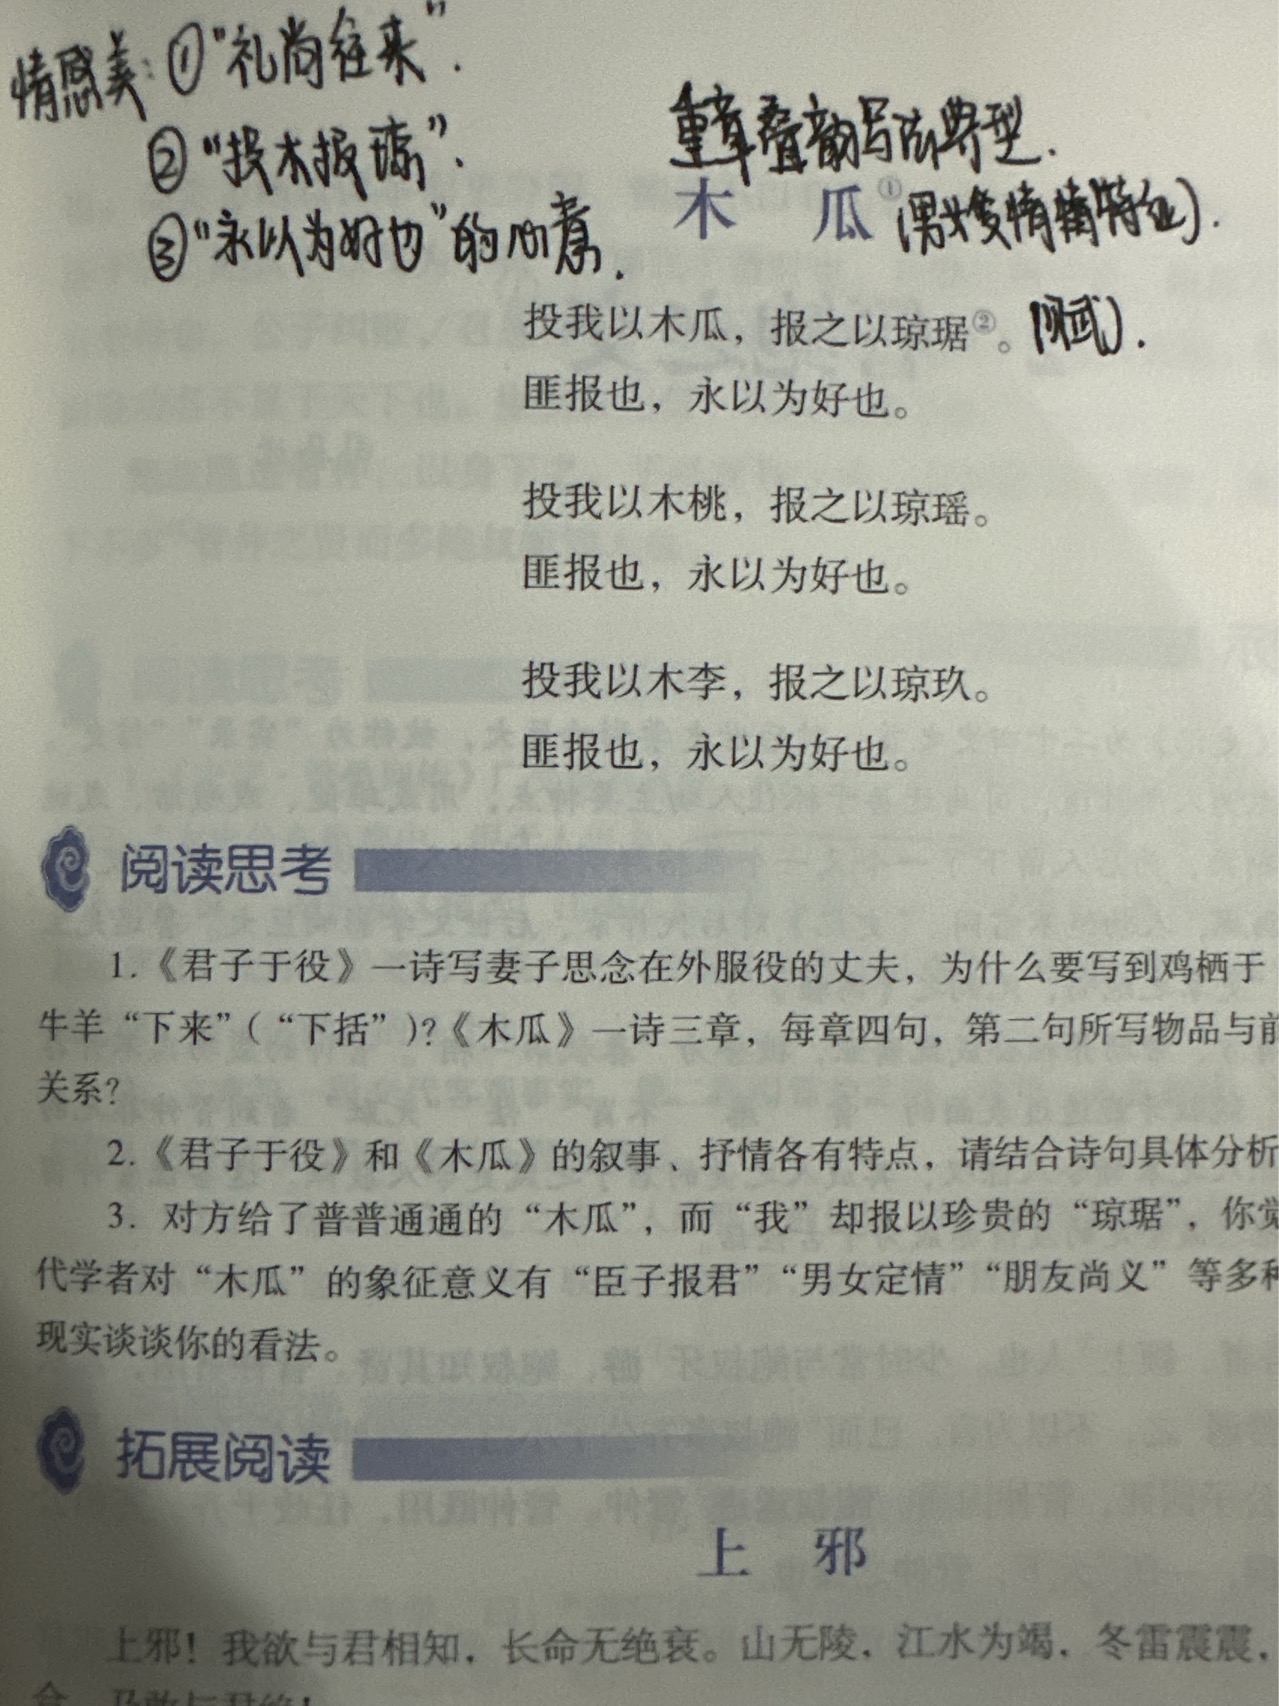 情感美：①“礼尚往来”．
②“投木报琼”．
③“永以为好也”的心意．
重章叠韵写法典型．
木 瓜①
投我以木瓜，报之以琼琚②。
匪报也，永以为好也。
投我以木桃，报之以琼瑶。
匪报也，永以为好也。
投我以木李，报之以琼玖。
匪报也，永以为好也。
阅读思考
1.《君子于役》一诗写妻子思念在外服役的丈夫，为什么要写到鸡栖于
牛羊“下来”（“下括”）？《木瓜》一诗三章，每章四句，第二句所写物品与前
关系？
2.《君子于役》和《木瓜》的叙事、抒情各有特点，请结合诗句具体分析
3. 对方给了普普通通的“木瓜”，而“我”却报以珍贵的“琼琚”，你觉
代学者对“木瓜”的象征意义有“臣子报君”“男女定情”“朋友尚义”等多种
现实谈谈你的看法。
拓展阅读
上 邪
上邪！我欲与君相知，长命无绝衰。山无陵，江水为竭，冬雷震震，
合，乃敢与君绝！